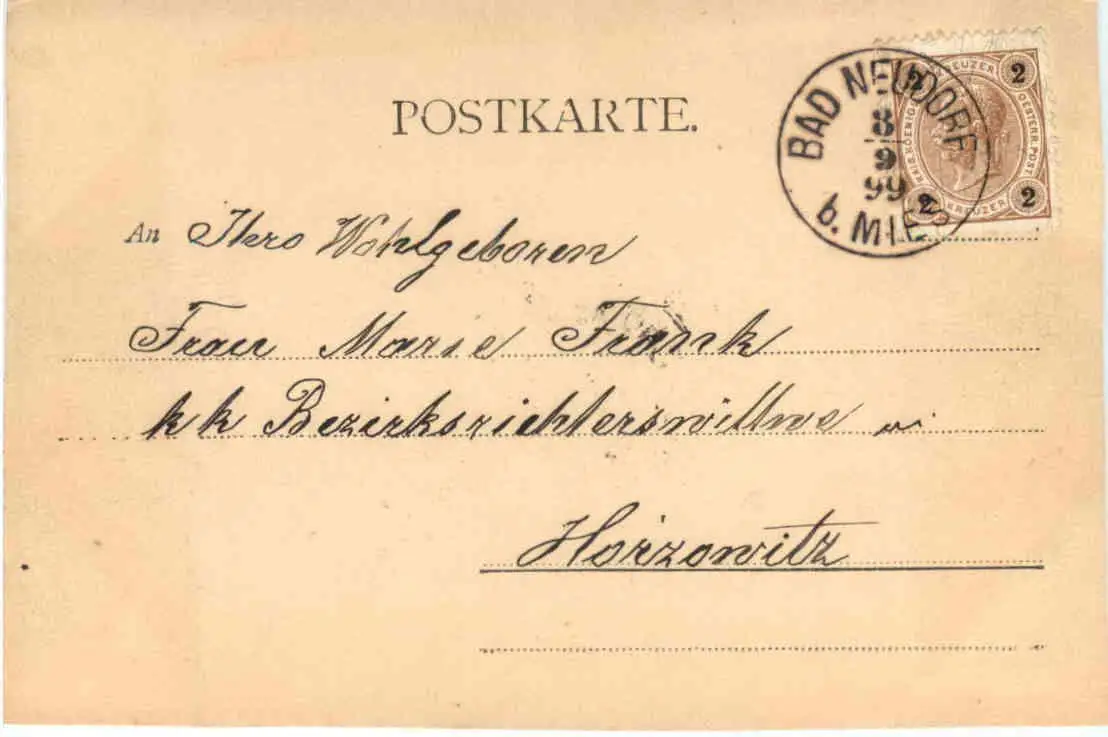 POSTKARTE.
BAD NEUDORF
8
9
99
b. MIES
2 KREUZER 2
KAIS. KOENIGL. OESTERR. POST
2 KREUZER 2
An Ihro Wohlgeboren
Frau Marie Frank
kk Bezirksrichterswittwe in
Horzowitz